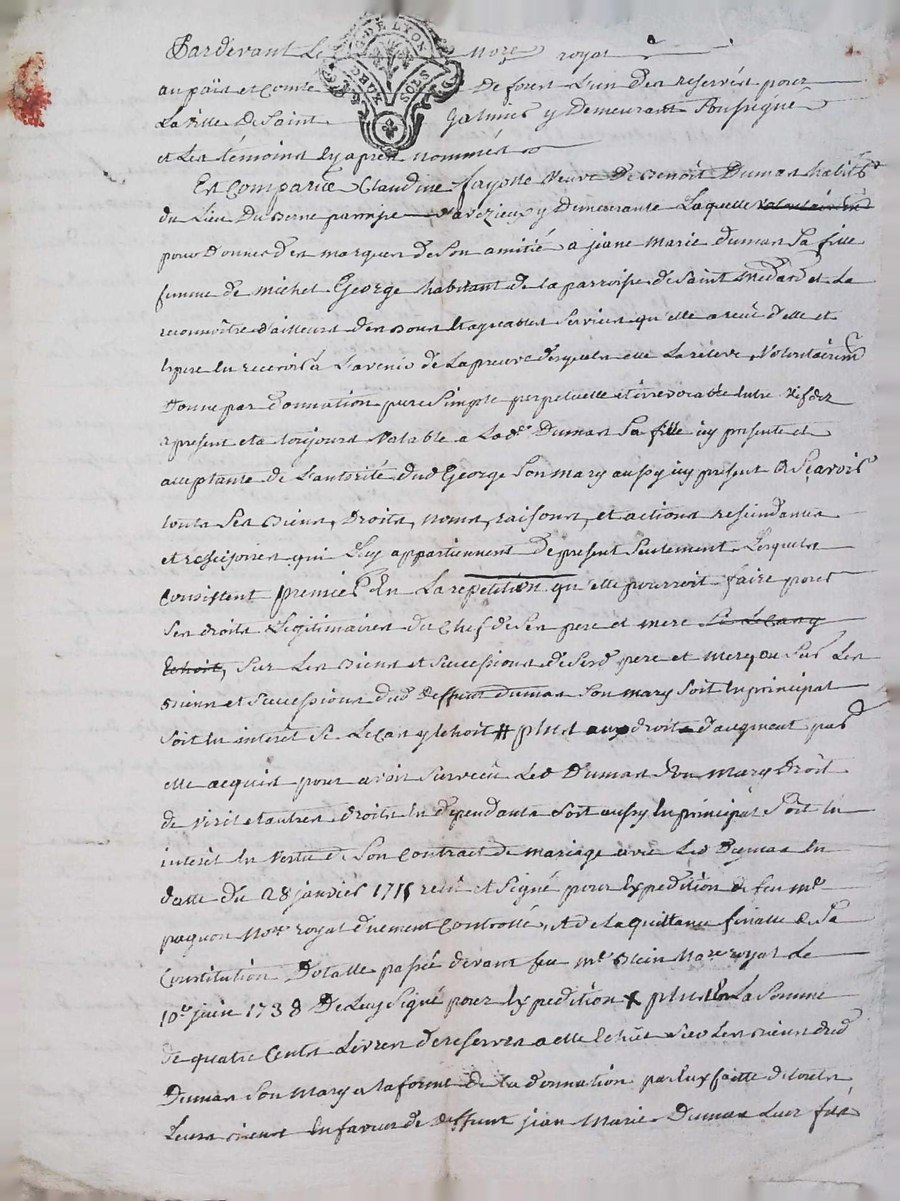 Pardevant Le notre royal
G. DE LYON
au païs et Comté De forest L'un des reservés pour
MOYEC DEUX SOLS
La ville de Saint Galmier y Demeurant Soussigné
et Les temoins cy apres nommés
Est Comparüe Claudine fayolle veuve De Benoit Dumas habitte
du Lieu Du Berne parroisse D'avezieux y Demeurante Laquelle
pour Donner des marques de Son amitié a jeane Marie dumas Sa fille
femme de michel George habitant de la parroisse de Saint Medard et La
reconnoître d'ailleurs des Bons et agreables Services qu'elle a reçu d'elle et
espere en recevoir a L'avenir de La preuve desquels elle La releve volontairemt
Donne par donnation pure Simple perpetuelle et irrevocable entre vifs dez
a present et a toujours valable a Lade Dumas Sa fille icy presente et
acceptante de L'autorité dud George Son mary aussy icy present A Sçavoir
touts Ses Biens, Droits, noms, raisons, et actions rescindantes
et rescisoires qui Luy appartiennent De present Seulement Lesquels
Consistent premier En La repetition qu'elle pourroit faire pour
Ses droits Legitimaires du Chef de Ses pere et mere Si Le Cas y
Echoit, Sur Les Biens et Successions de Sesd pere et mere, ou Sur Les
Biens et Successions dud deffunt dumas Son mary Soit en principal
Soit en interet Si Le Cas y Echoit # plus aux droits d'augment par
elle acquis pour avoir Survecu Led Dumas Son mary Droit
de viril et autres droits en dependants Soit aussy en principal Soit en
interet en vertu de Son Contract de mariage avec Led Dumas en
datte du 28 janvier 1715 reçu et Signé pour Expedition de feu me
paquon Nore royal duement Controllé, et de la quittance finalle de Sa
Constitution Dotalle passée devant feu me Blein Nore royal Le
10e juin 1738 De Luy Signé pour Expedition x plus En La Somme
de quatre Cents Livres de reserves a elle Echüe Sur Les Biens dud
Dumas Son Mary a la forme de la donnation par Eux faitte de touts
Leurs Biens En faveur de deffunt jean Marie Dumas Leur fils